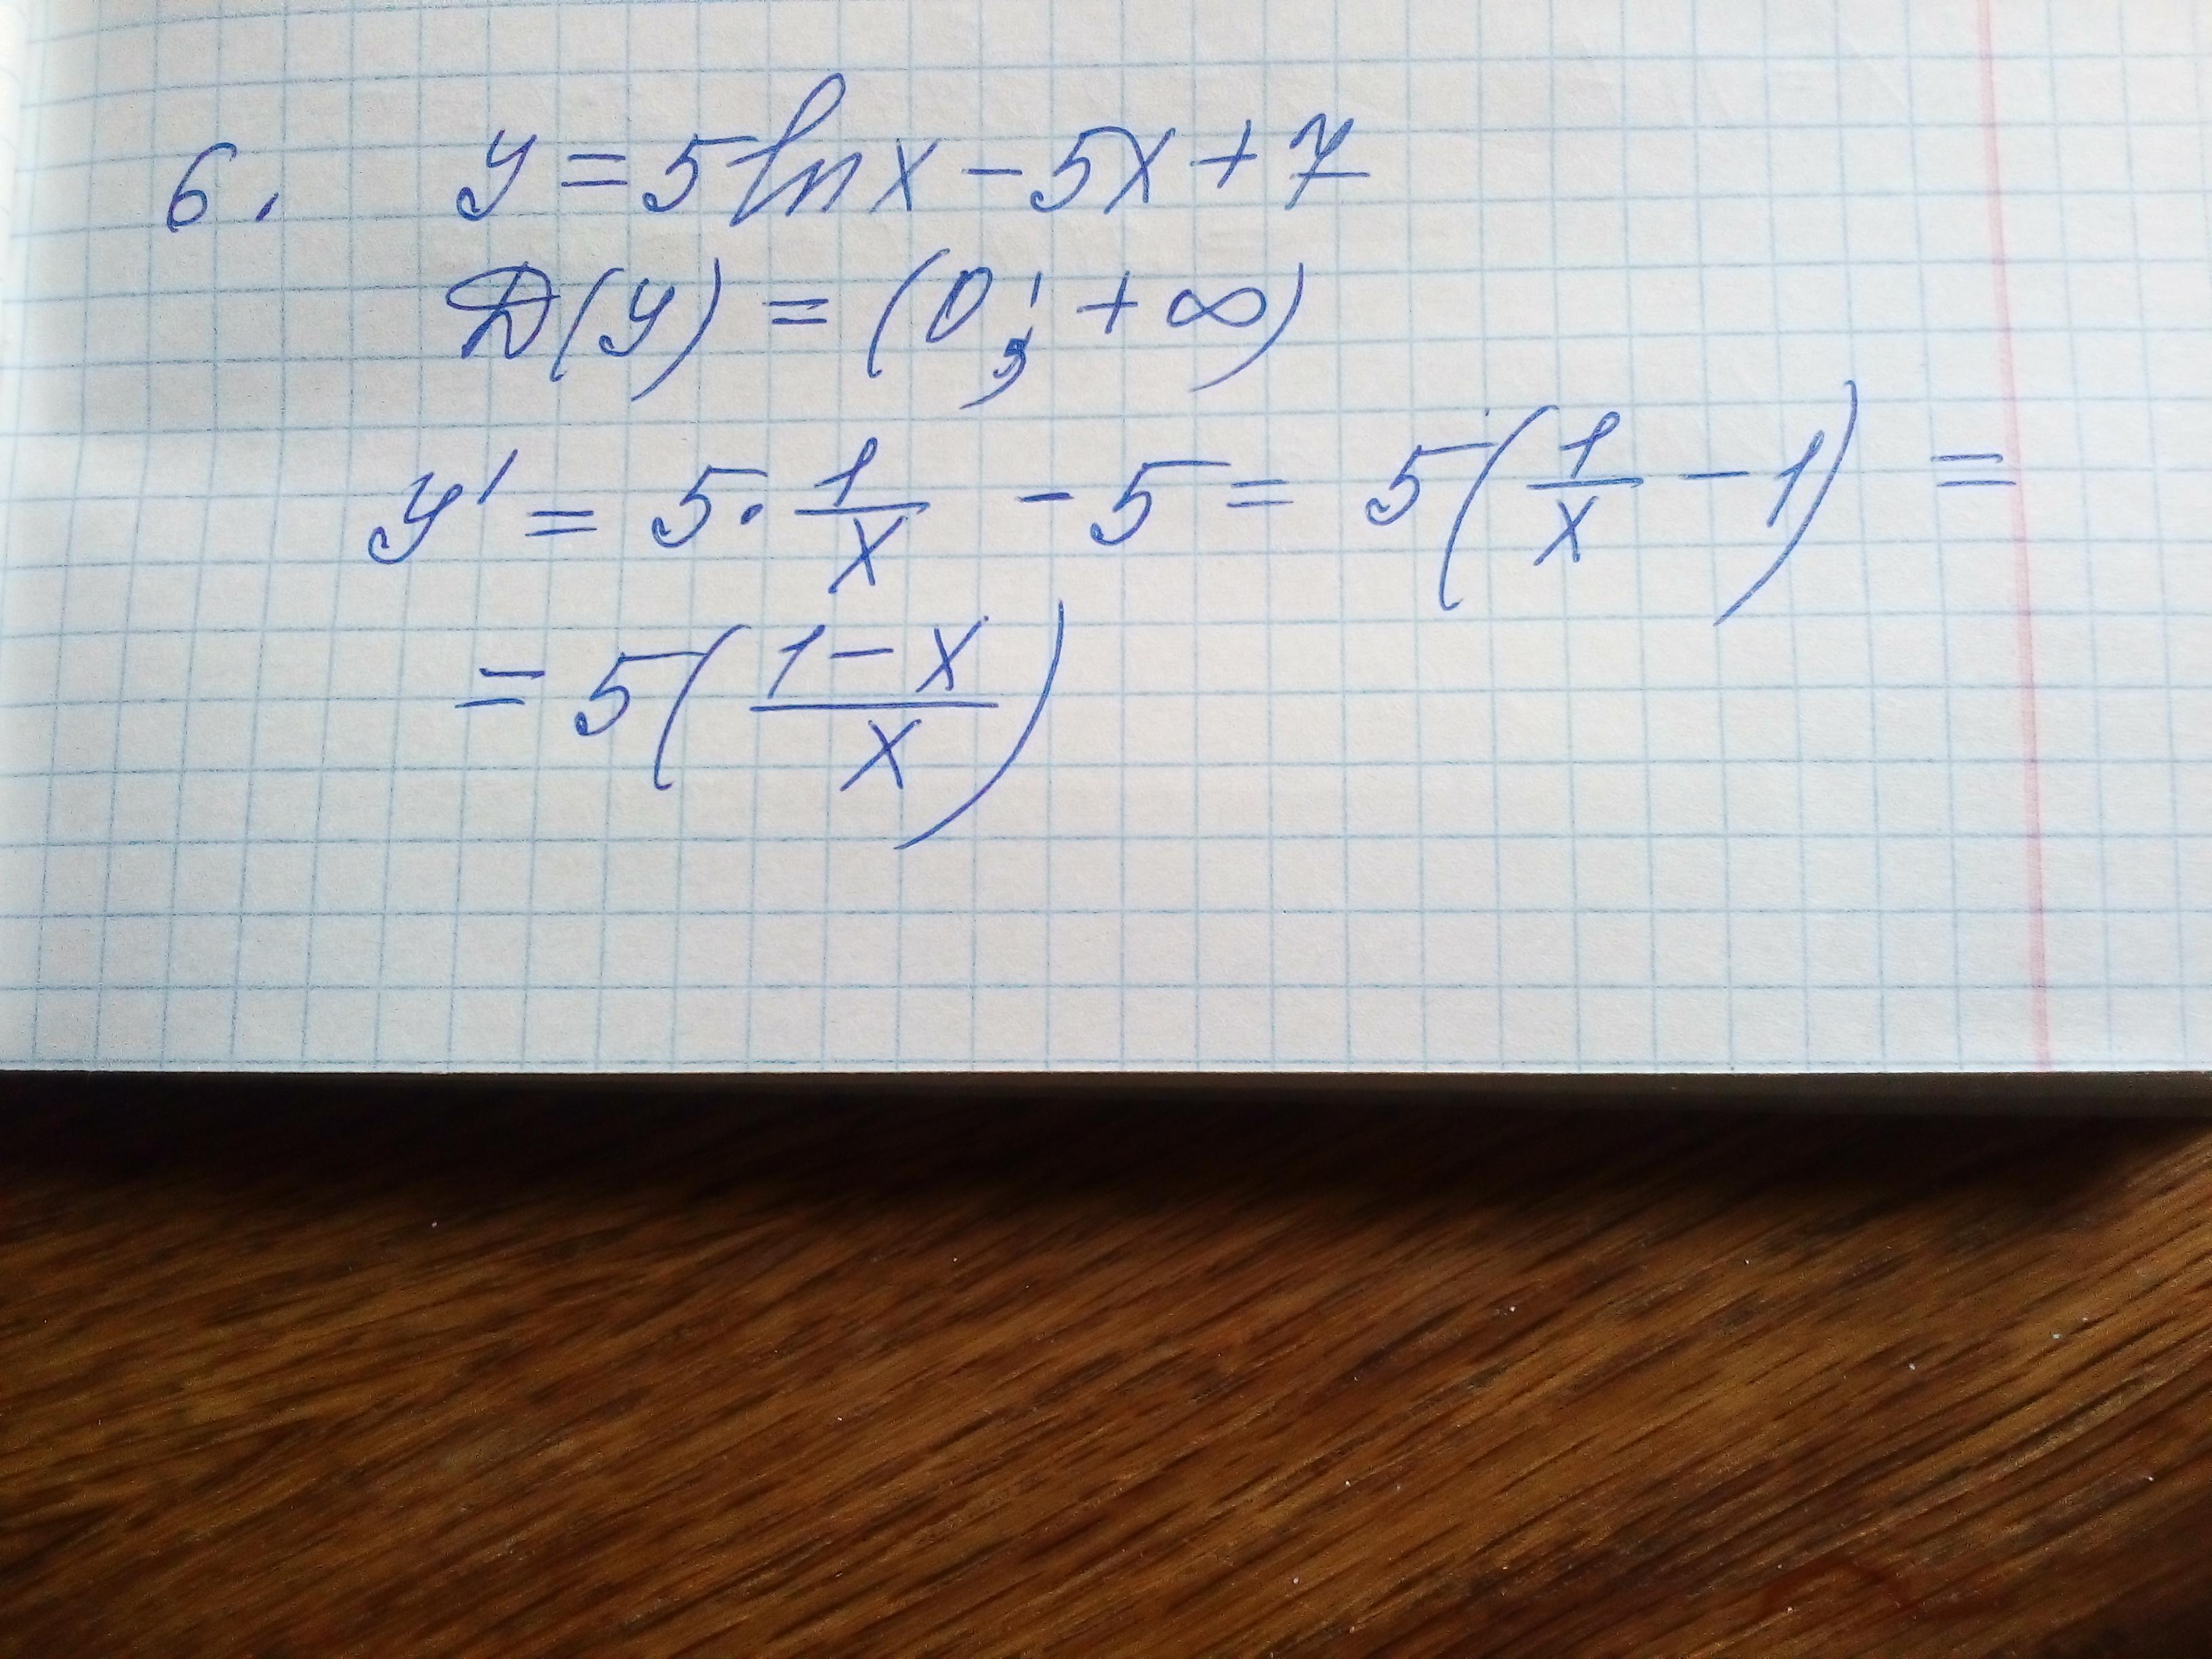 6. y = 5 ln x - 5x + 7
D(y) = (0; +∞)
y' = 5 · 1/x - 5 = 5(1/x - 1) =
= 5((1-x)/x)